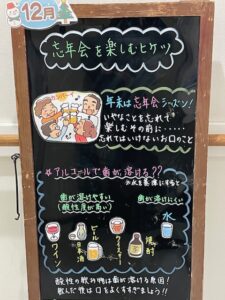 12月
忘年会を楽しむヒケツ
年末は忘年会シーズン!
いやなことを忘れず
楽しむその前に・・・・・
忘れてはいけないお口のこと
☆アルコールで歯が溶ける??
歯が溶けやすい
(酸性度が高い)
歯が溶けにくい
水
ワイン
日本酒
ビール
ウイスキー
焼酎
酸性の飲み物は歯が溶ける原因!
飲んだ後は口をよくすすぎましょう!!